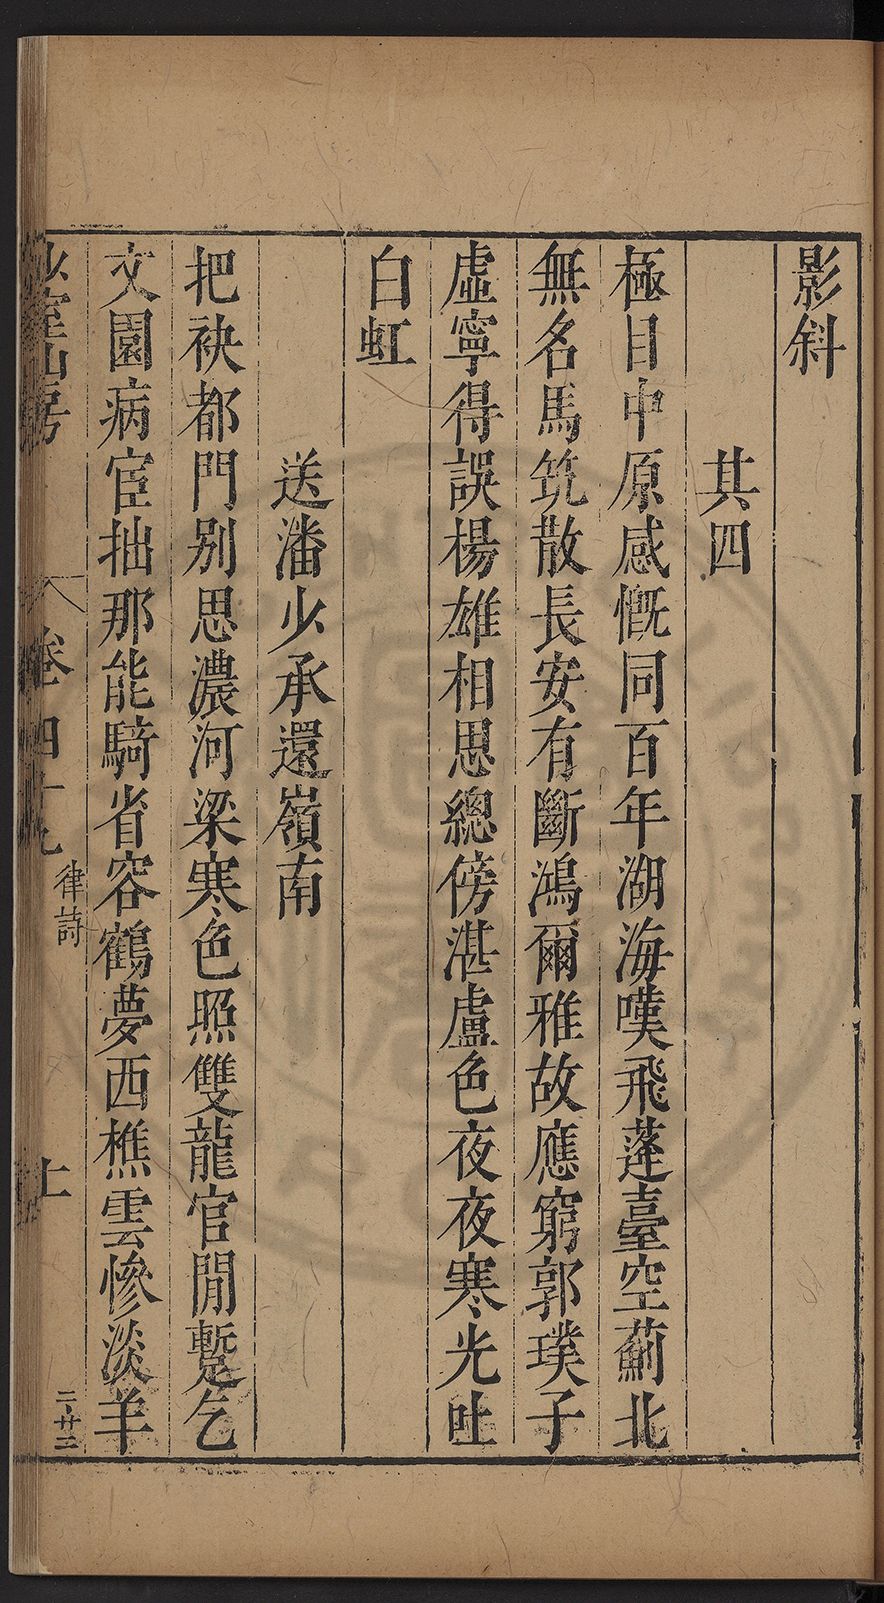 影斜
其四
極目中原感慨同百年湖海嘆飛蓬臺空薊北
無名馬筑散長安有斷鴻爾雅故應窮郭璞子
虛寧得誤楊雄相思總傍湛盧色夜夜寒光吐
白虹
送潘少承還嶺南
把袂都門別思濃河梁寒色照雙龍官閒蹔乞
文園病宦拙那能騎省容鶴夢西樵雲慘淡羊
少室山房
卷四十九
律詩
上
二廿二